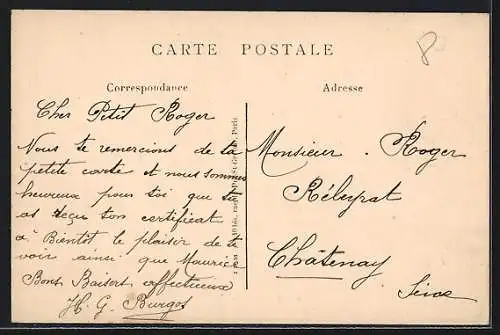 CARTE POSTALE
Correspondance
Adresse
Cher Petit Roger
Nous te remercions de ta
petite carte et nous sommes
heureux pour toi que tu
as reçu ton certificat
à Bientôt le plaisir de te
voir ainsi que Maurice
Bons Baisers affectueux
H. G. Burgos
Monsieur. Roger
Rélespat
Châtenay
Seine